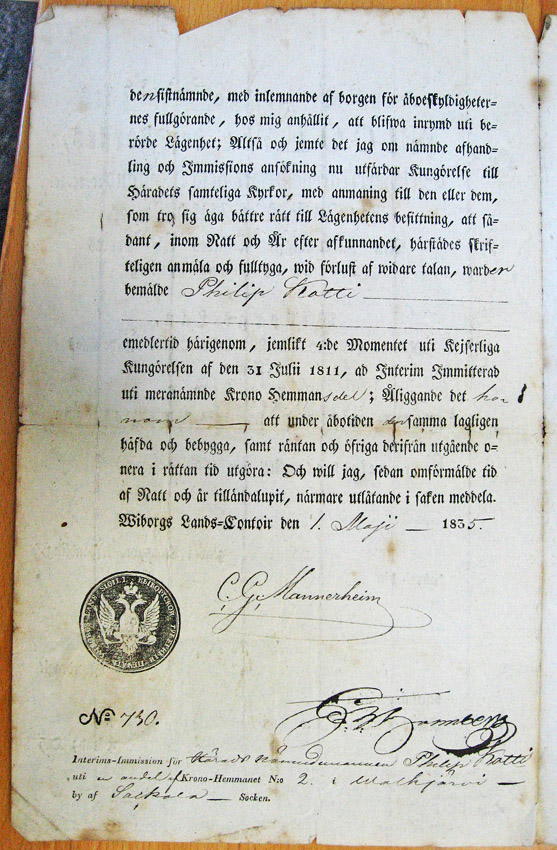 densistnämnde, med inlemnande af borgen för åboeskyldigheter-
nes fullgörande, hos mig anhållit, att blifwa inrymd uti be-
rörde Lägenhet; Altså och jemte det jag om nämnde afhand-
ling och Immissions ansökning nu utfärdar Kungörelse till
Häradets samteliga Kyrkor, med anmaning till den eller dem,
som tro sig äga bättre rätt till Lägenhetens besittning, att så-
dant, inom Natt och År efter afkunnandet, härstädes skrif-
teligen anmäla och fulltyga, wid förlust af widare talan, warder
bemälde Philip Kotti
emedlertid härigenom, jemlikt 4:de Momentet uti Kejserliga
Kungörelsen af den 31 Julii 1811, ad Interim Immitterad
uti meranämnde Krono Hemmansdel; Åliggande det ho-
nom att under åbotiden densamma lagligen
häfda och bebygga, samt räntan och öfriga derifrån utgående o-
nera i rättan tid utgöra: Och will jag, sedan omförmälde tid
af Natt och år tilländalupit, närmare utlåtande i saken meddela.
Wiborgs Lands-Contoir den 1. Maji 1835.
C. G. Mannerheim
No 730.
Interims-Immission för Härads Nämndemannen Philip Kotti
uti en andel af Krono-Hemmanet N:o 2. i Walkjärvi
by af Socken.